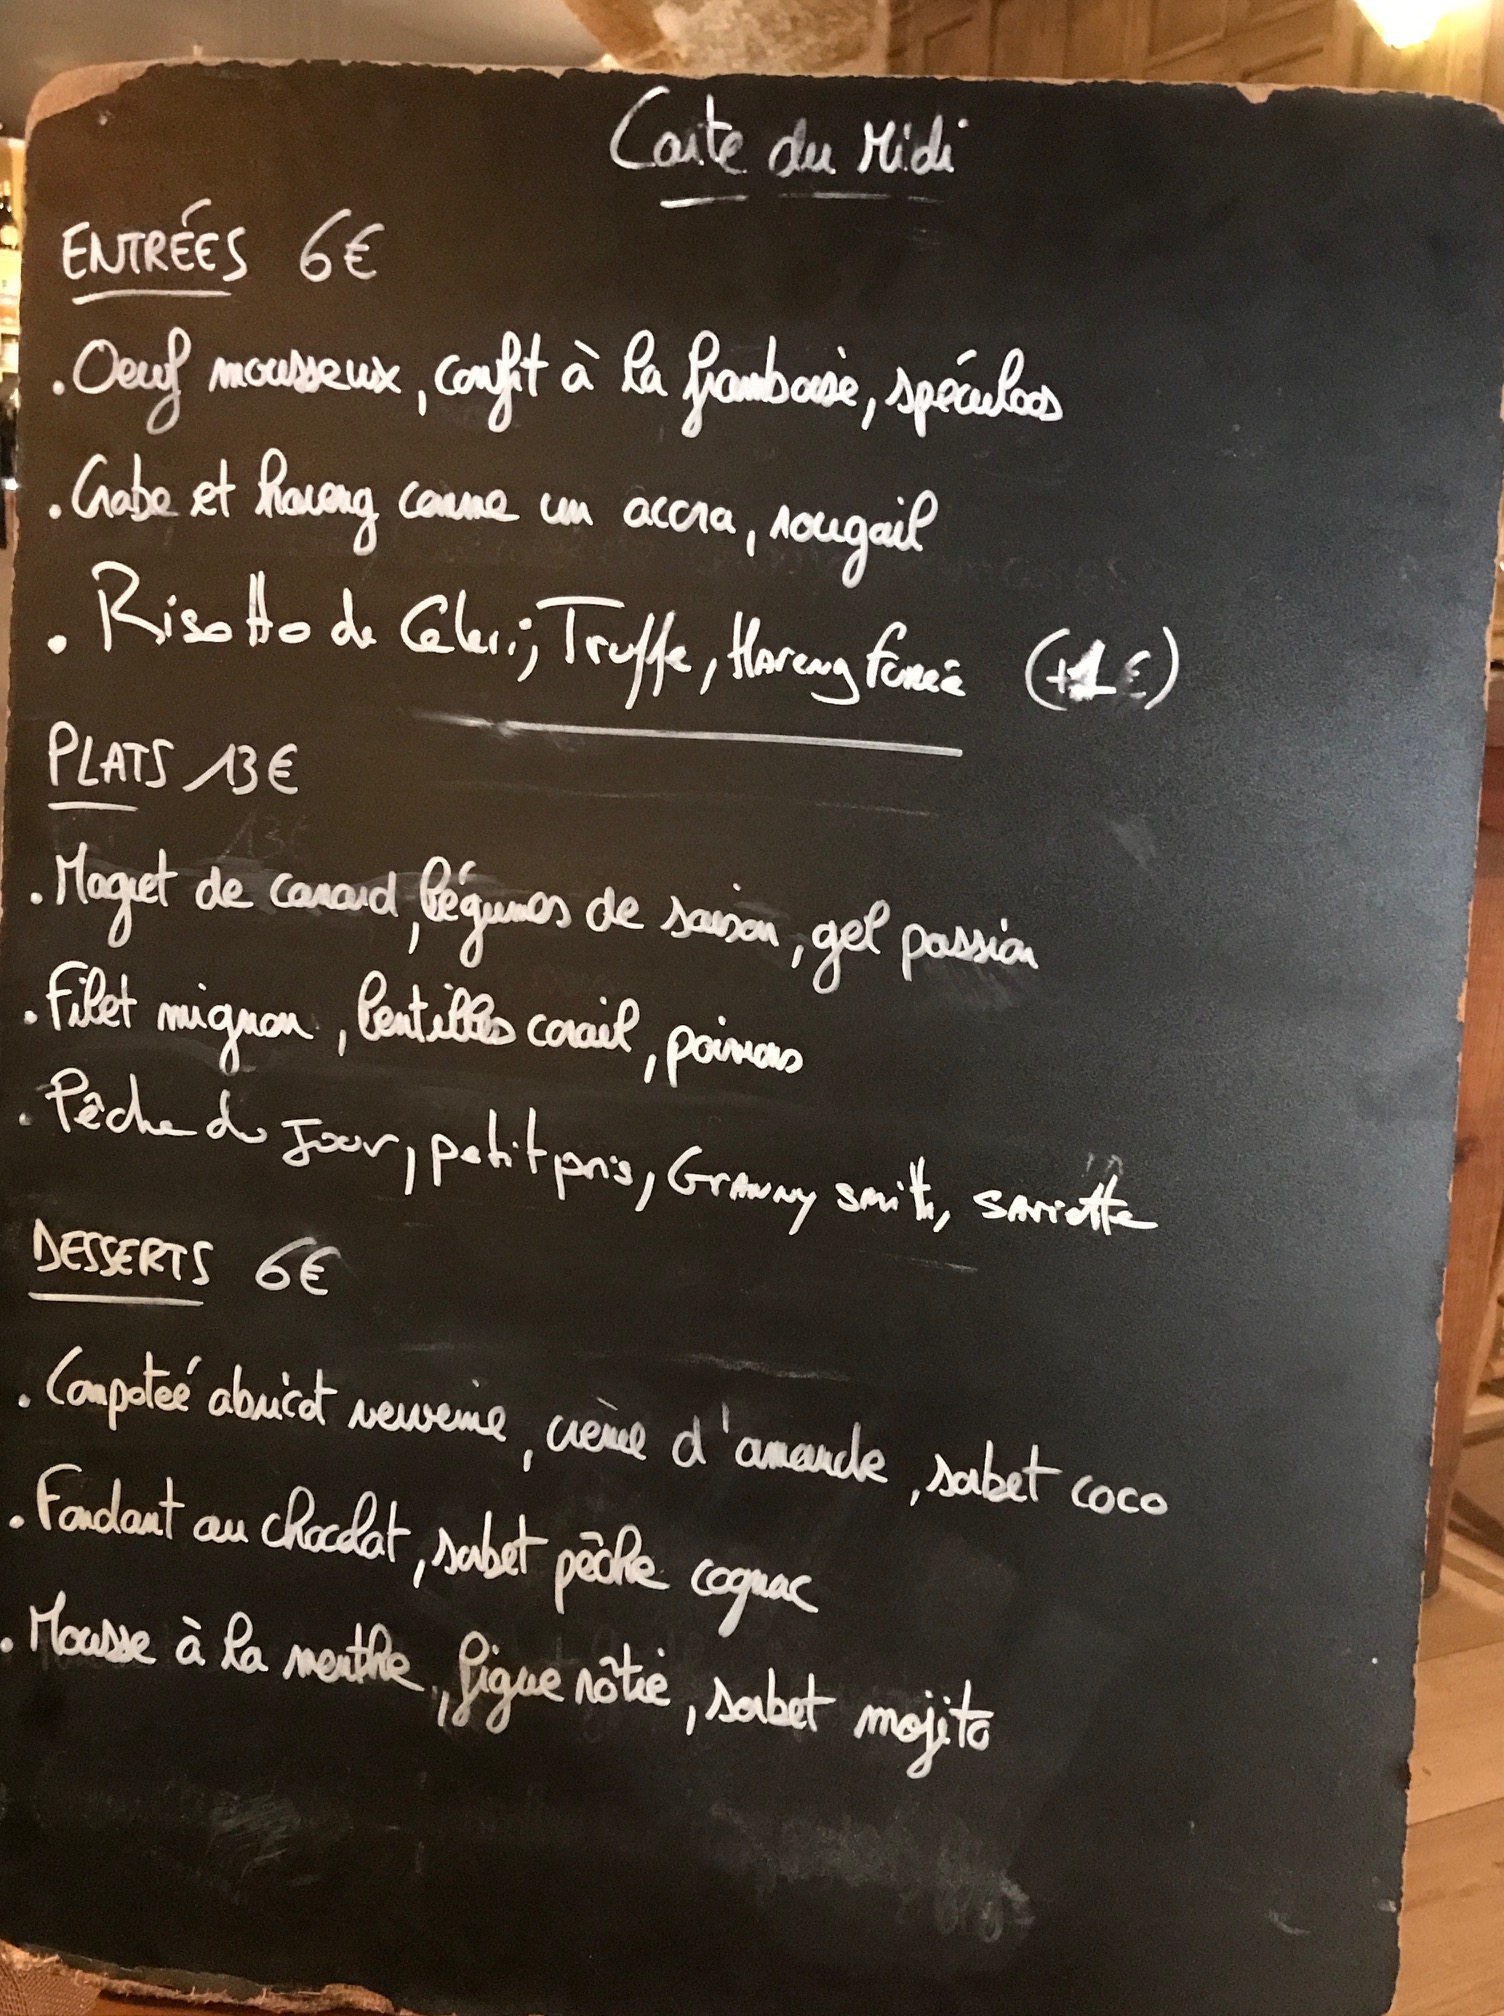 Carte du Midi
ENTRÉES 6€
. Oeuf mousseux, confit à la framboise, spéculoos
. Crabe et hareng comme un accra, rougail
. Risotto de Céleri, Truffe, Hareng fumée (+1€)
PLATS 13€
. Magret de canard, légumes de saison, gel passion
. Filet mignon, lentilles corail, poivrons
. Pêche du Jour, petit pois, Granny smith, sarriette
DESSERTS 6€
. Compoteé abricot verveine, crème d'amande, sorbet coco
. Fondant au chocolat, sorbet pêche cognac
. Mousse à la menthe, figue rôtie, sorbet mojito